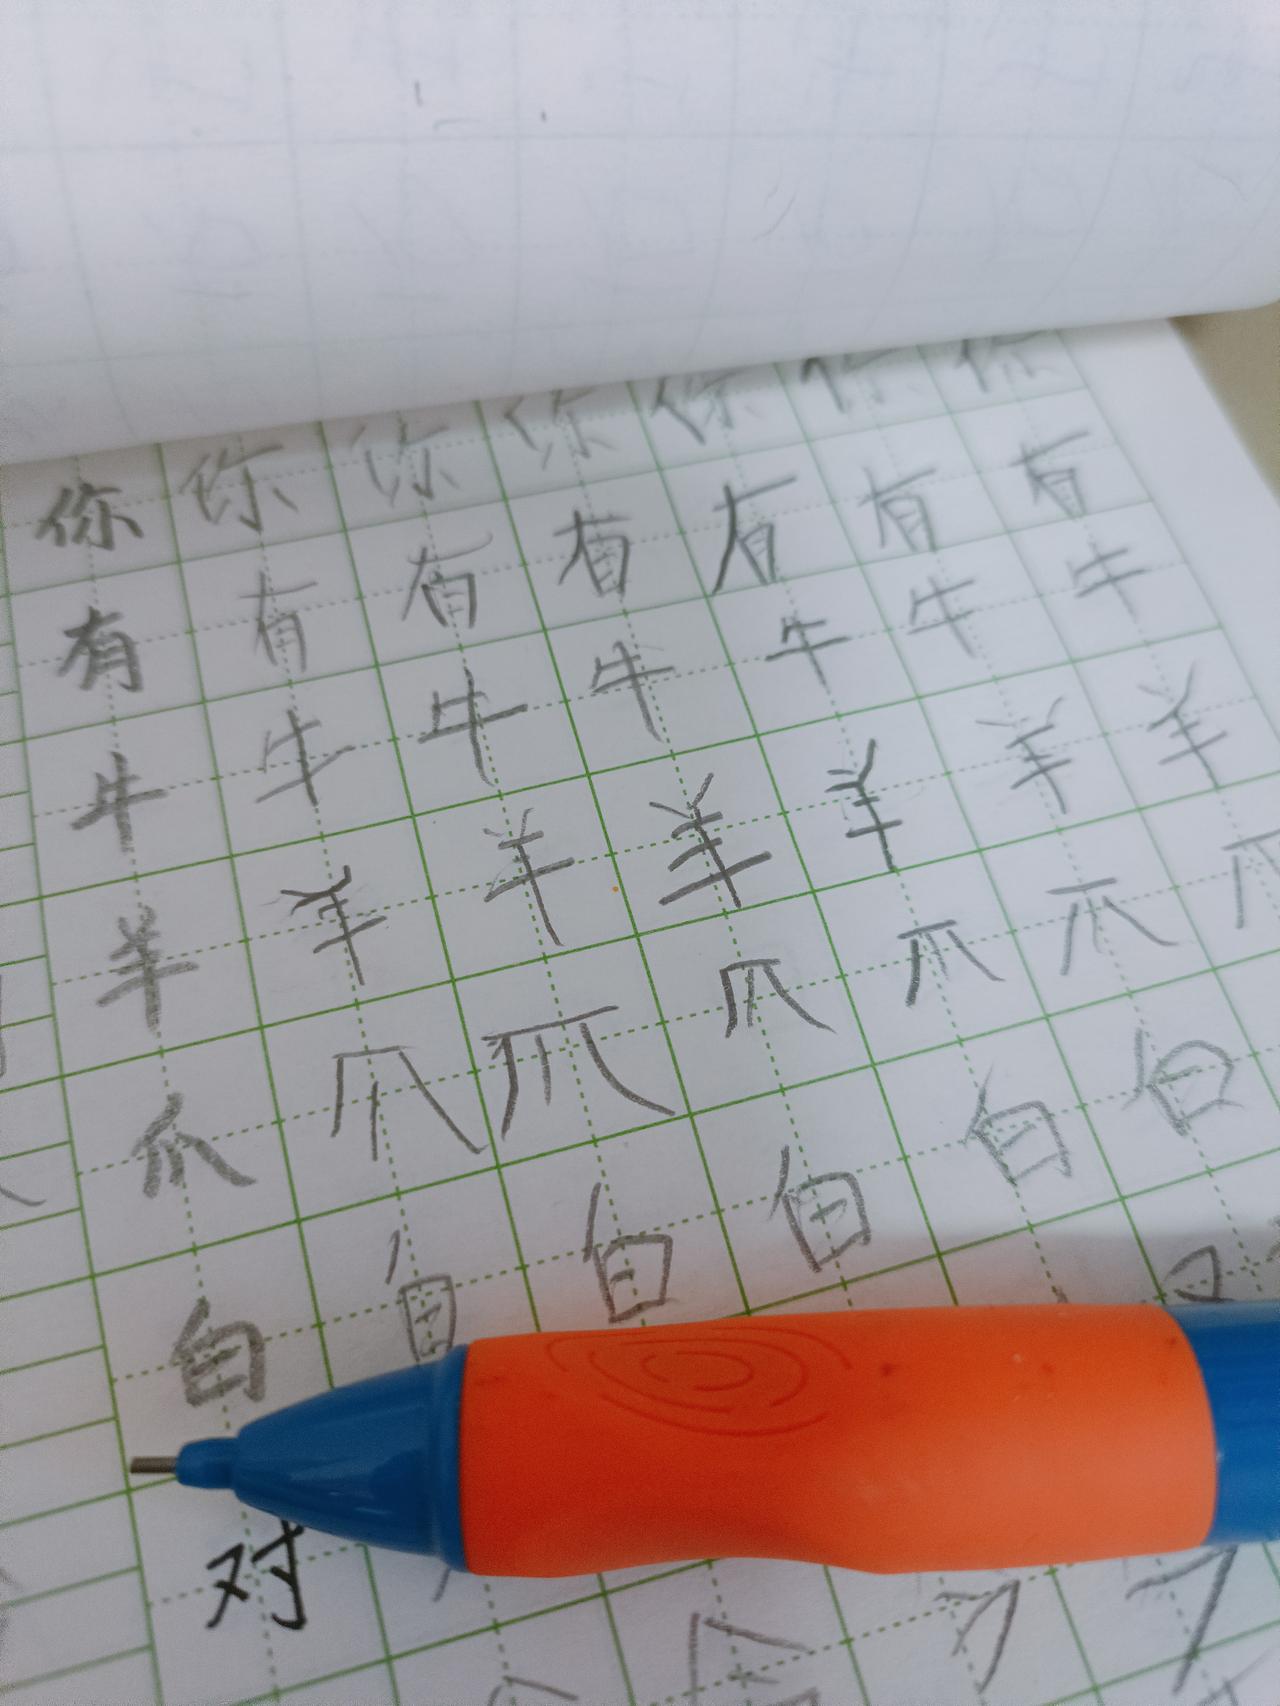 你 你 你 你 你 你 你
有 有 有 有 有 有 有
牛 牛 牛 牛 牛 牛 牛
羊 羊 羊 羊 羊 羊 羊
爪 爪 爪 爪 爪 爪
白 白 白 白 白 白
对